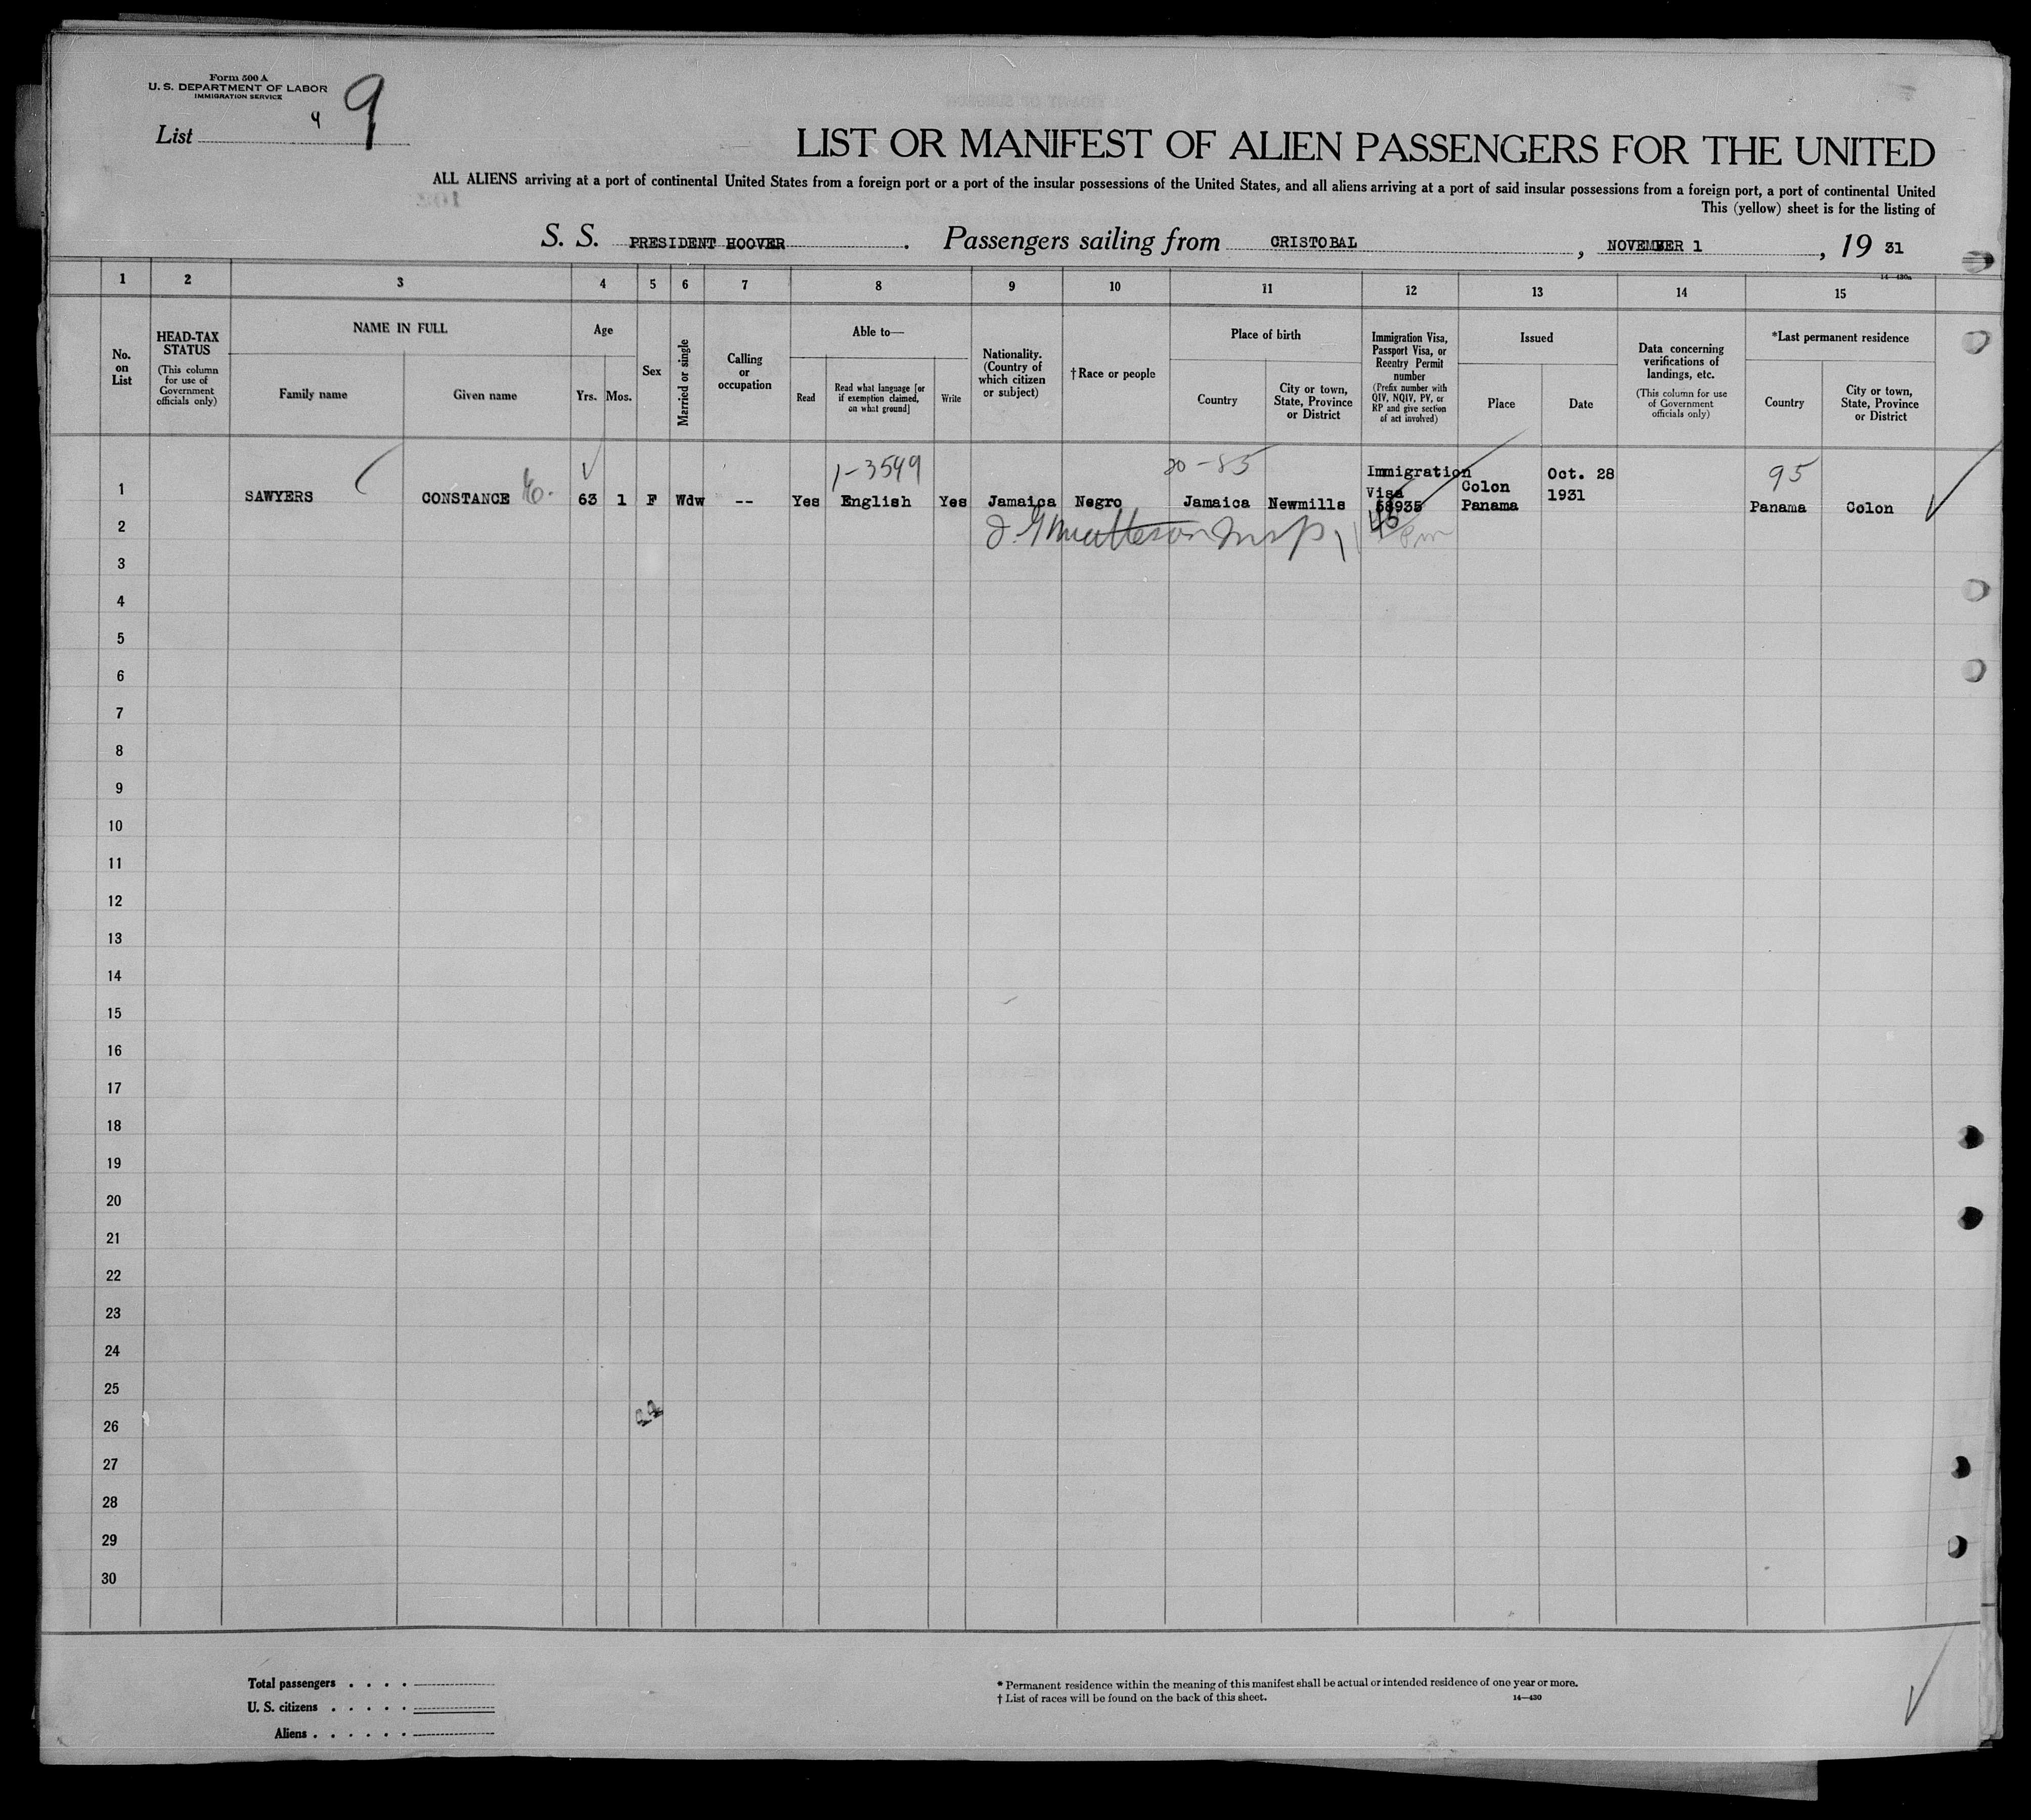 Form 500 A
U. S. DEPARTMENT OF LABOR
IMMIGRATION SERVICE
List 4 9
LIST OR MANIFEST OF ALIEN PASSENGERS FOR THE UNITED
ALL ALIENS arriving at a port of continental United States from a foreign port or a port of the insular possessions of the United States, and all aliens arriving at a port of said insular possessions from a foreign port, a port of continental United
This (yellow) sheet is for the listing of
S. S. PRESIDENT HOOVER. Passengers sailing from CRISTOBAL, NOVEMBER 1, 19 31
14—430a
1 2 3 4 5 6 7 8 9 10 11 12 13 14 15
No. on List
HEAD-TAX STATUS (This column for use of Government officials only)
NAME IN FULL
Family name Given name
Age
Yrs. Mos.
Sex
Married or single
Calling or occupation
Able to—
Read
Read what language [or if exemption claimed, on what ground]
Write
Nationality. (Country of which citizen or subject)
†Race or people
Place of birth
Country
City or town, State, Province or District
Immigration Visa, Passport Visa, or Reentry Permit number (Prefix number with QIV, NQIV, PV, or RP and give section of act involved)
Issued
Place Date
Data concerning verifications of landings, etc. (This column for use of Government officials only)
*Last permanent residence
Country
City or town, State, Province or District
1-3549 20-85 95
1 SAWYERS CONSTANCE 63 1 F Wdw -- Yes English Yes Jamaica Negro Jamaica Newmills Immigration Visa 58935 Colon Panama Oct. 28 1931 Panama Colon
45
2
3
4
5
6
7
8
9
10
11
12
13
14
15
16
17
18
19
20
21
22
23
24
25
26
27
28
29
30
Total passengers . . . .
U. S. citizens . . . . .
Aliens . . . . . .
* Permanent residence within the meaning of this manifest shall be actual or intended residence of one year or more.
† List of races will be found on the back of this sheet. 14—430